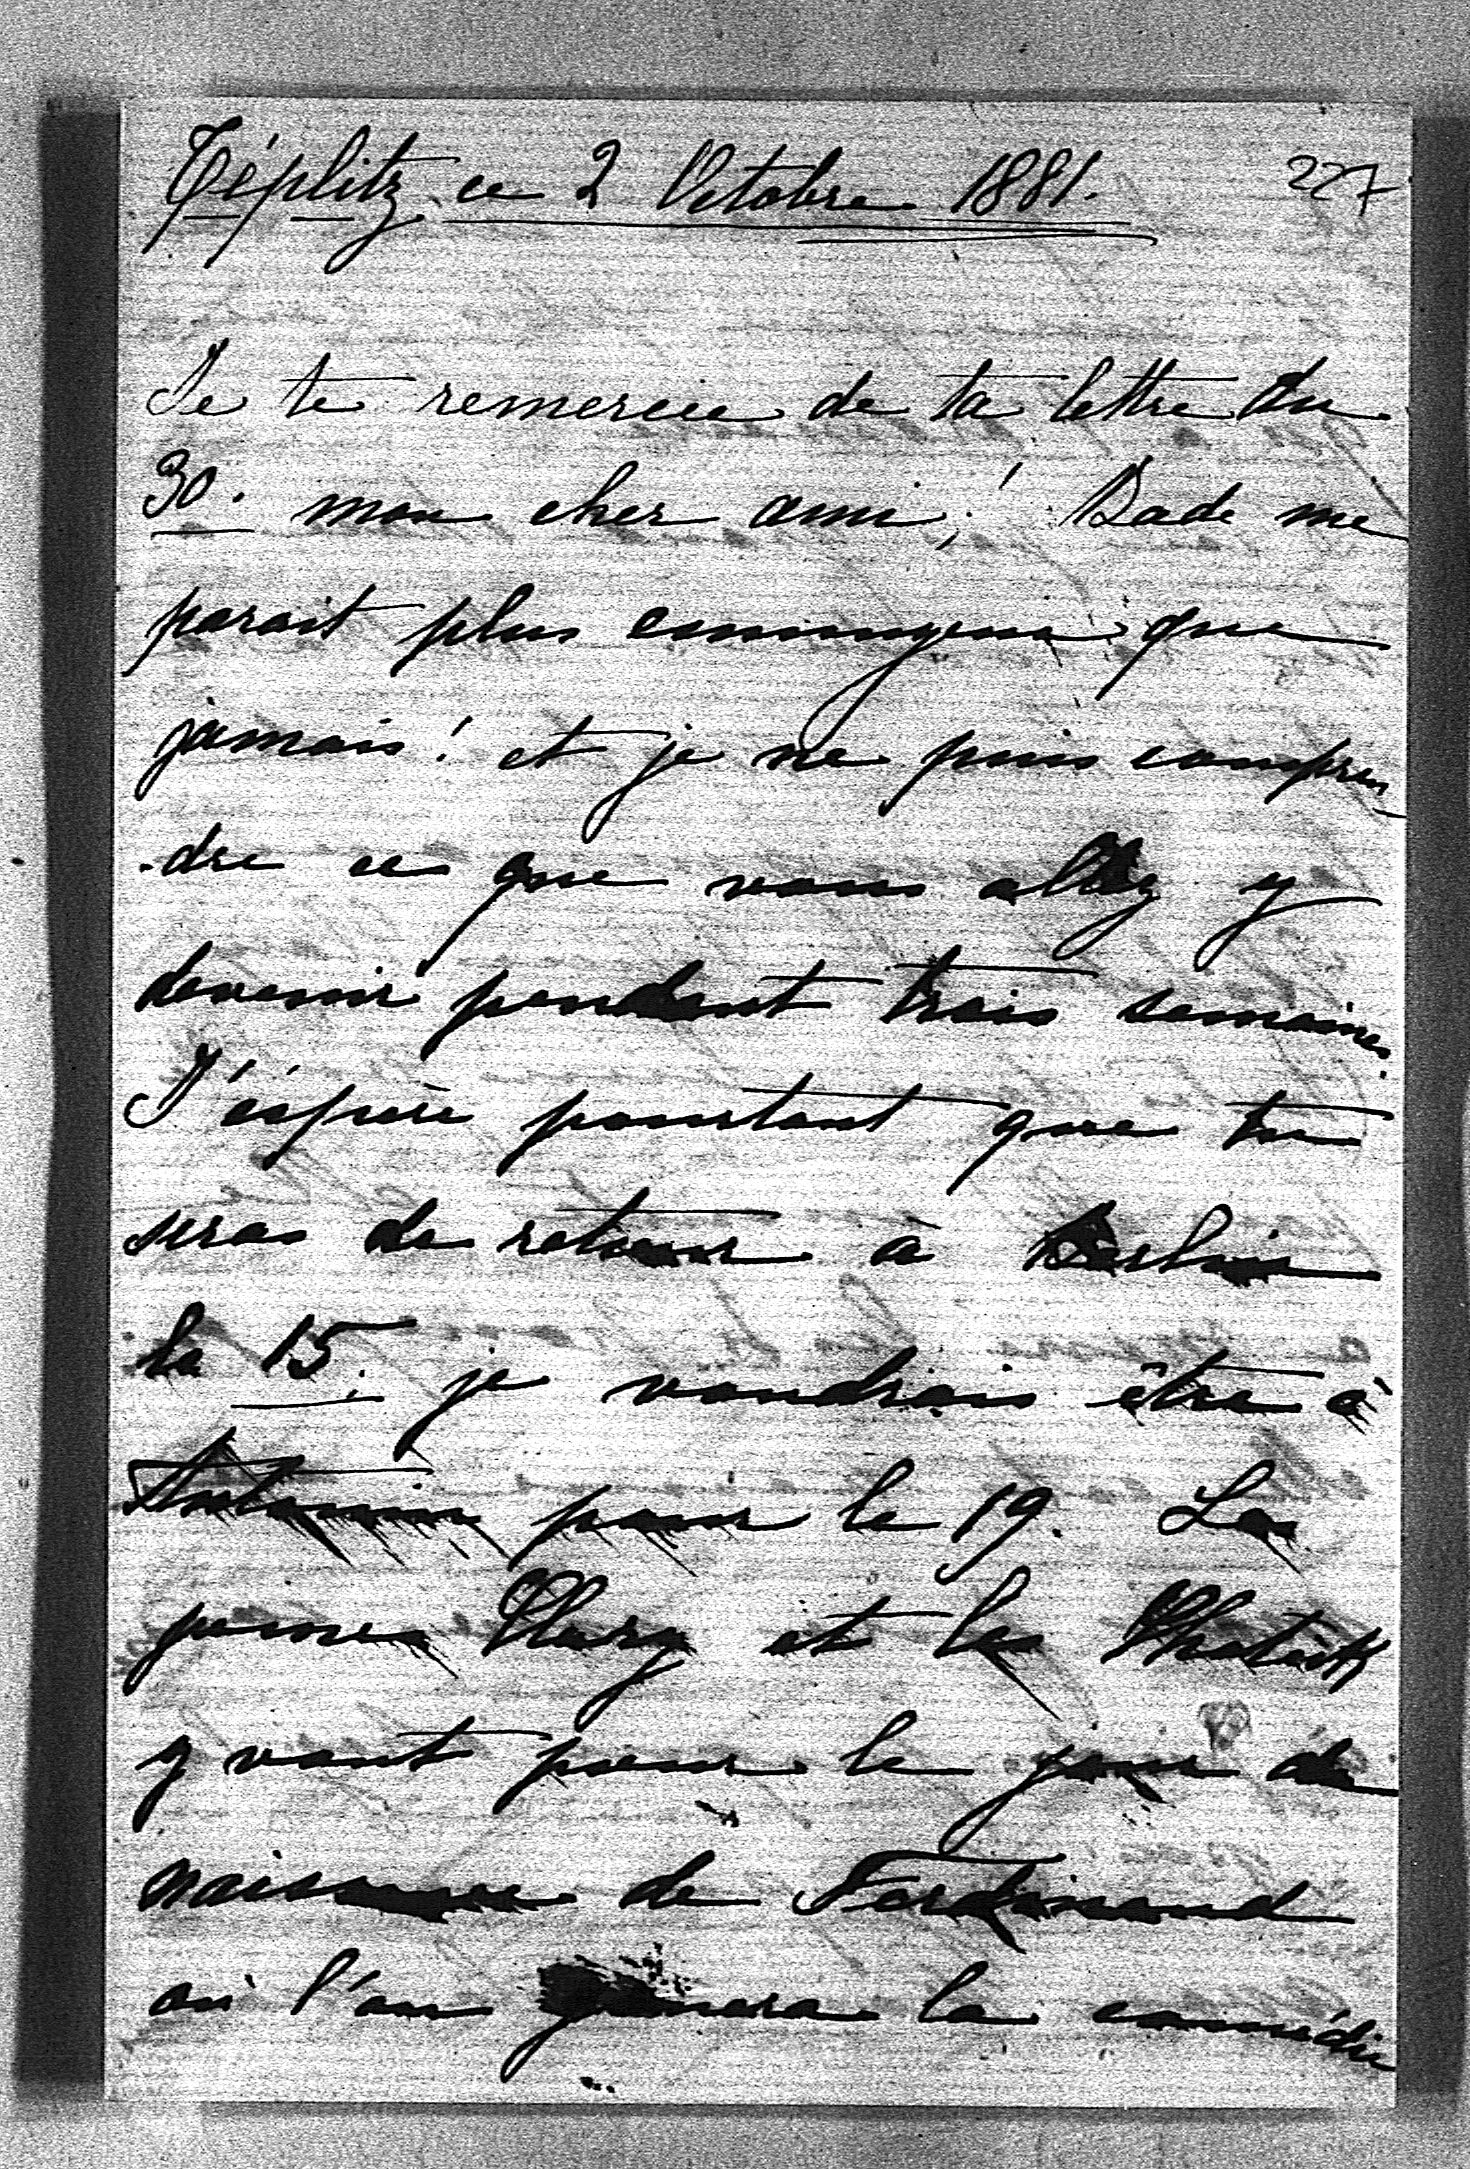 Téplitz ce 2 Octobre 1881.
227
Je te remercie de ta lettre du
30. mon cher ami! Bade me
parait plus ennuyeux que
jamais! et je ne puis compren
-dre ce que vous allez y
devenir pendant trois semaines.
J'éspère pourtant que tu
seras de retour à Berlin
le 15. je voudrais être à
Antonin pour le 19. Les
jeunes Clary et les
y vont pour le jour de
naissance de Ferdinand
où l'on jouera la comédie